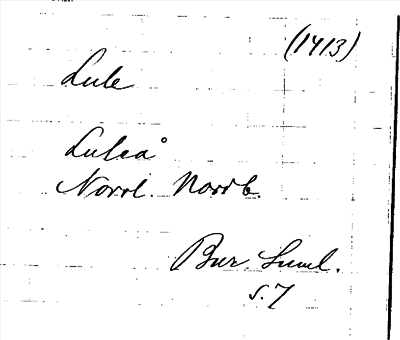 (1413)
Lule
Luleå
Norrl. Nordb.
Bur. Suml.
s. 7